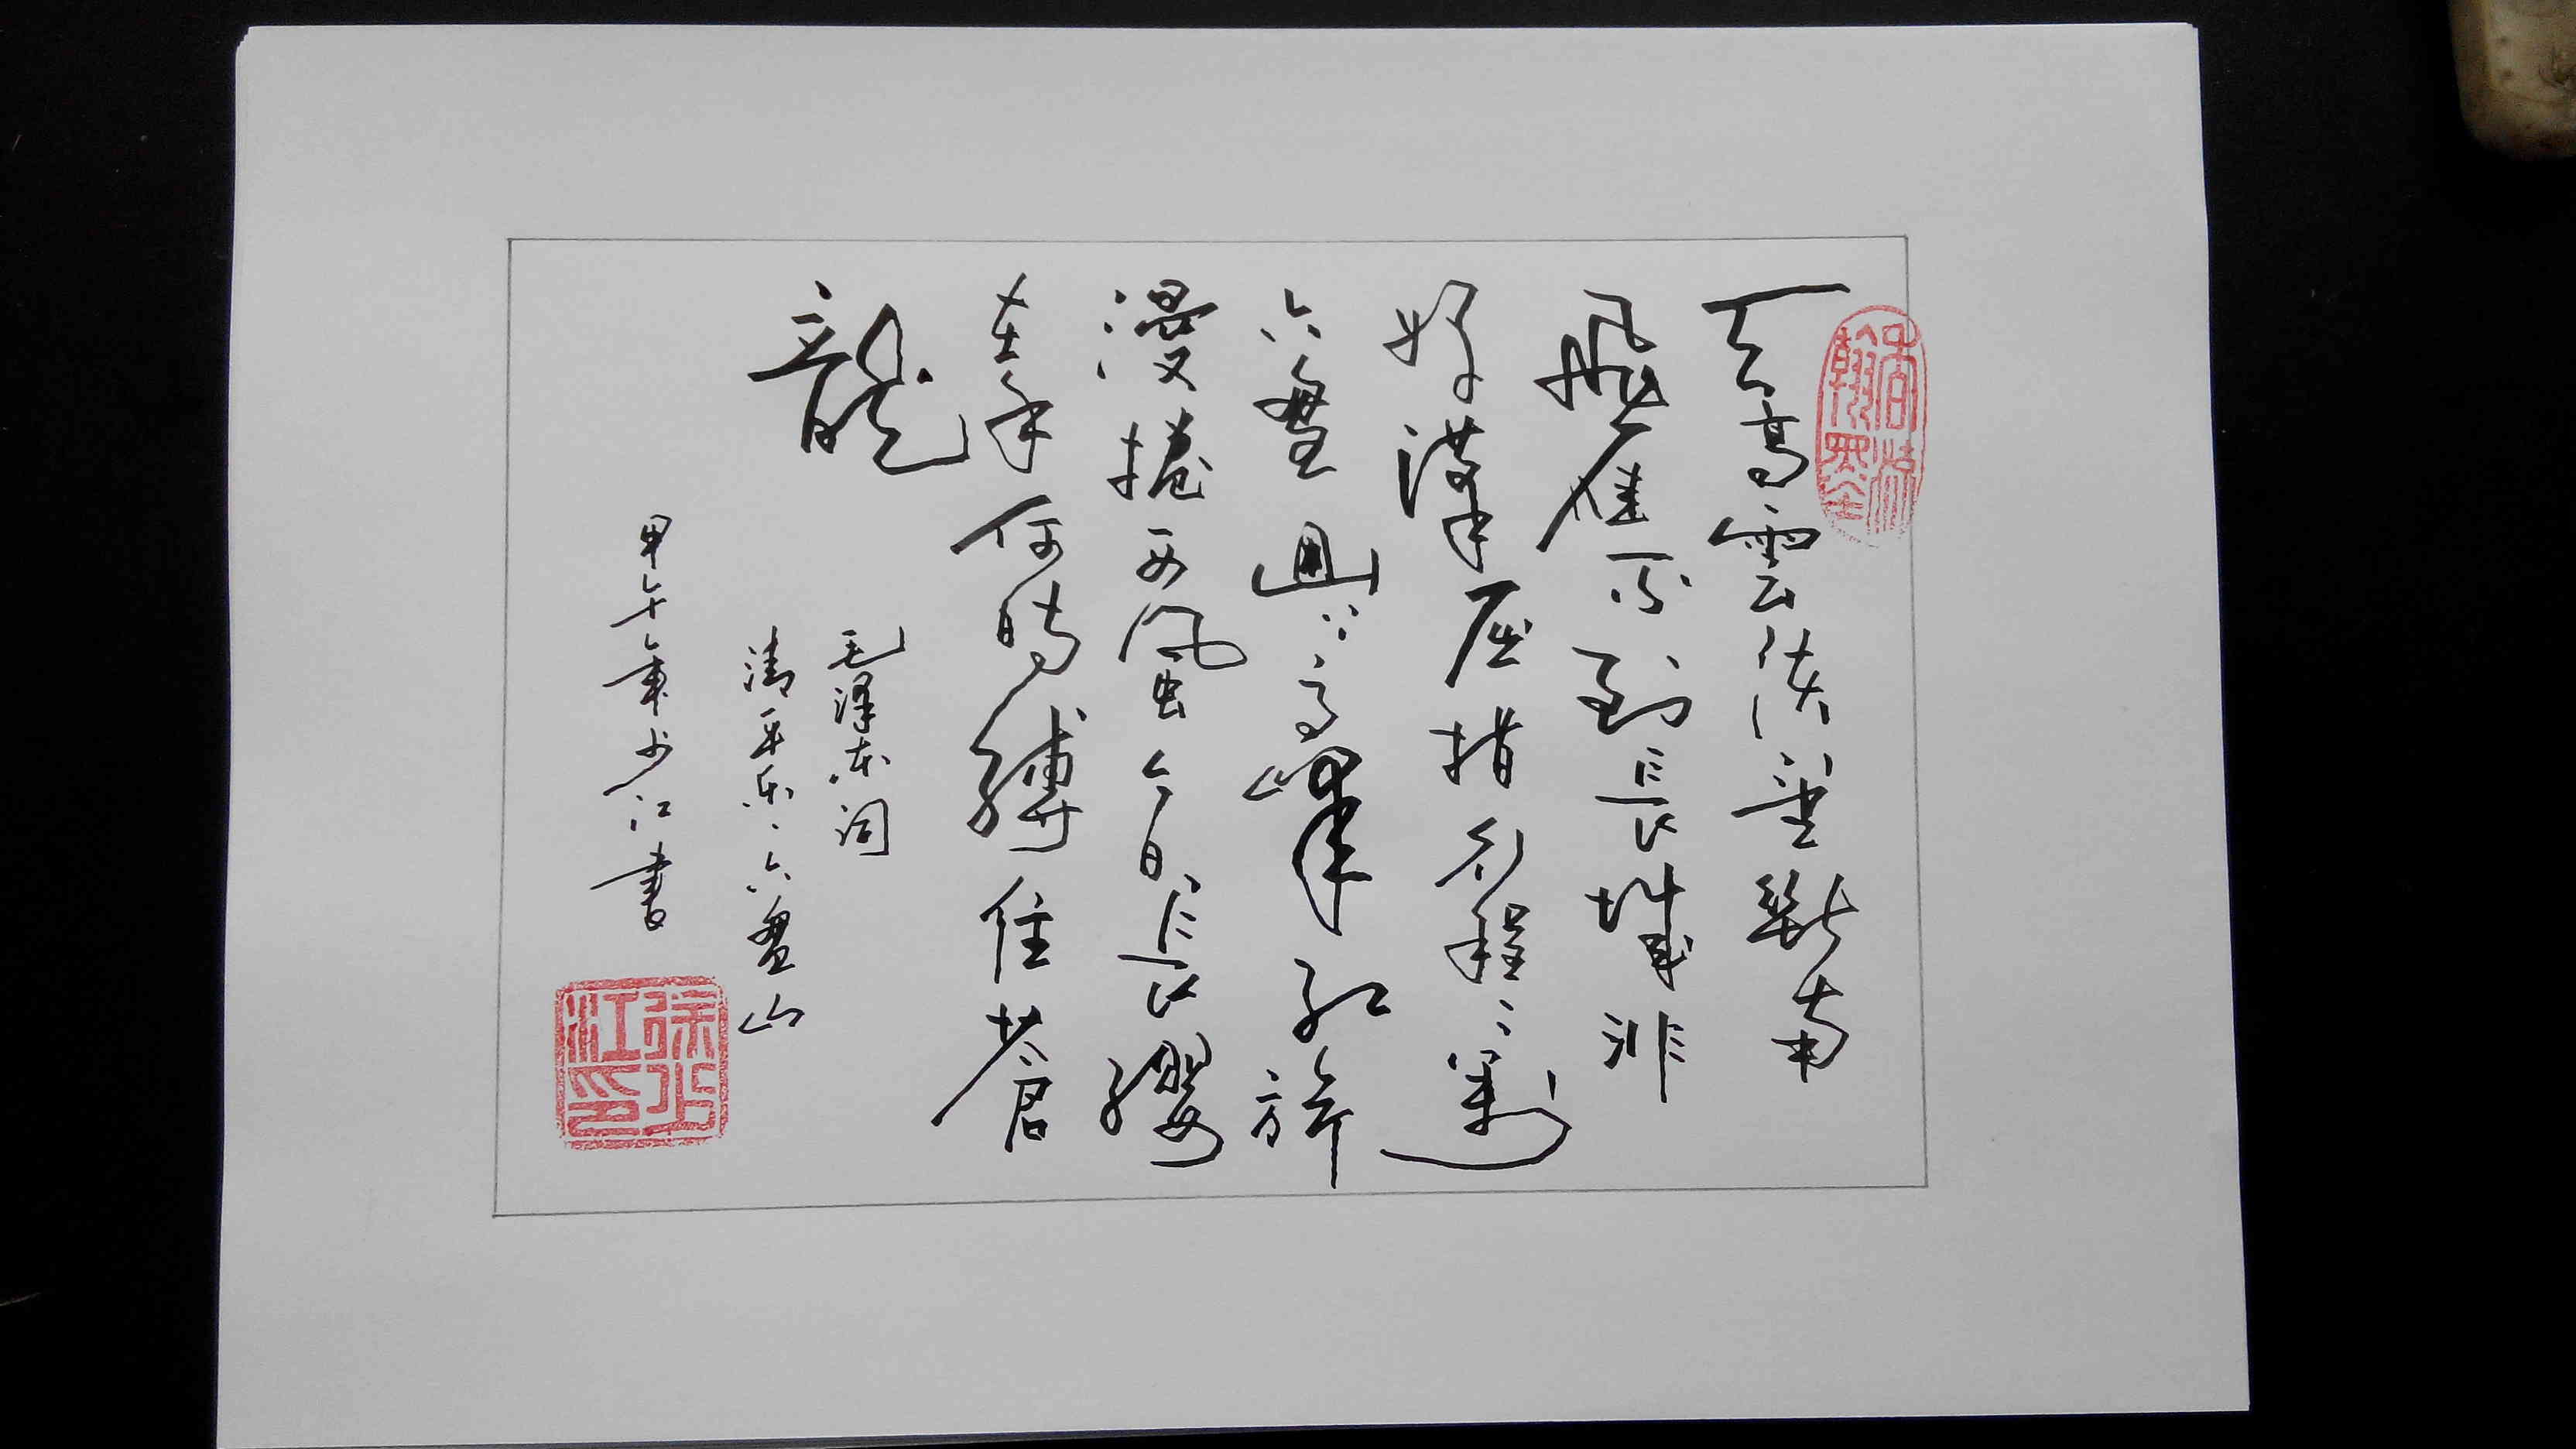 天高雲淡望斷南
飛雁不到長城非
好漢屈指行程二萬
六盘山上高峰紅旗
漫捲西風今日長纓
在手何時縛住蒼
龍
毛澤东詞
清平乐·六盘山
甲午年少江書
徐少江印
翰墨